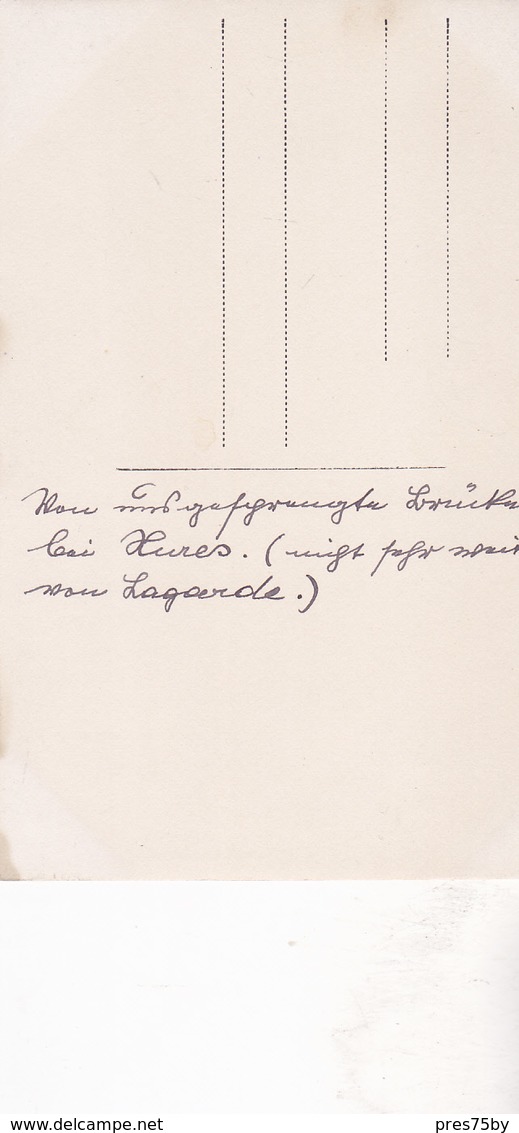 Von uns gesprengte Brücke
bei Xures. (nicht sehr weit
von Lagarde.)
delcampe.net
pres75by